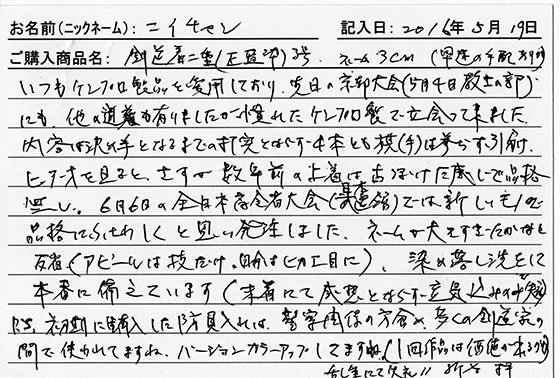 お名前(ニックネーム): ニイチャン 記入日: 2016年5月19日
ご購入商品名: 剣道着二重(正藍染)3号. ネーム3cm (早速の手配ありがとう)
いつもケンプロ製品を愛用しており、先日の京都大会(5月4日教士の部)
にも、他の道着も有りましたが慣れたケンプロ製で立会って来ました.
内容は決め手となるまでの打突とならず4本とも旗(手)は挙らず引分け.
ビデオを見ると、さすが数年前の上着は色ぼけた感じで品格
無し。6月6日の全日本高令者大会(日本武道館)では、新しいもので
品格にふさわしくと思い発注しました. ネームが大きすぎたかなと
反省(アピールは技だけ。自分はヒカエ目に)、染め落し洗をして
本番に備えています(未着にて感想とならず
P.S. 初期に購入した防具入れは、警察関係の方含め、多くの剣道家の
間で使われてますね. バージョンカラーアップしてますね(1回作品は価値がある
乱筆にて失礼!!